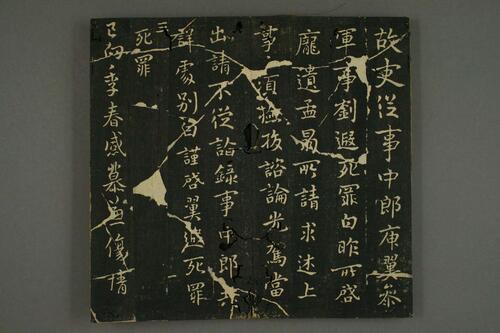 故吏從事中郎庾翼參
軍事劉遐死罪白昨所啓
龐遺孟昌所請求述上
事須諮論光駕當
出請不從詣錄事中郎共
詳處別白謹啓翼遐死罪
死罪
三
已向季春感慕兼傷情